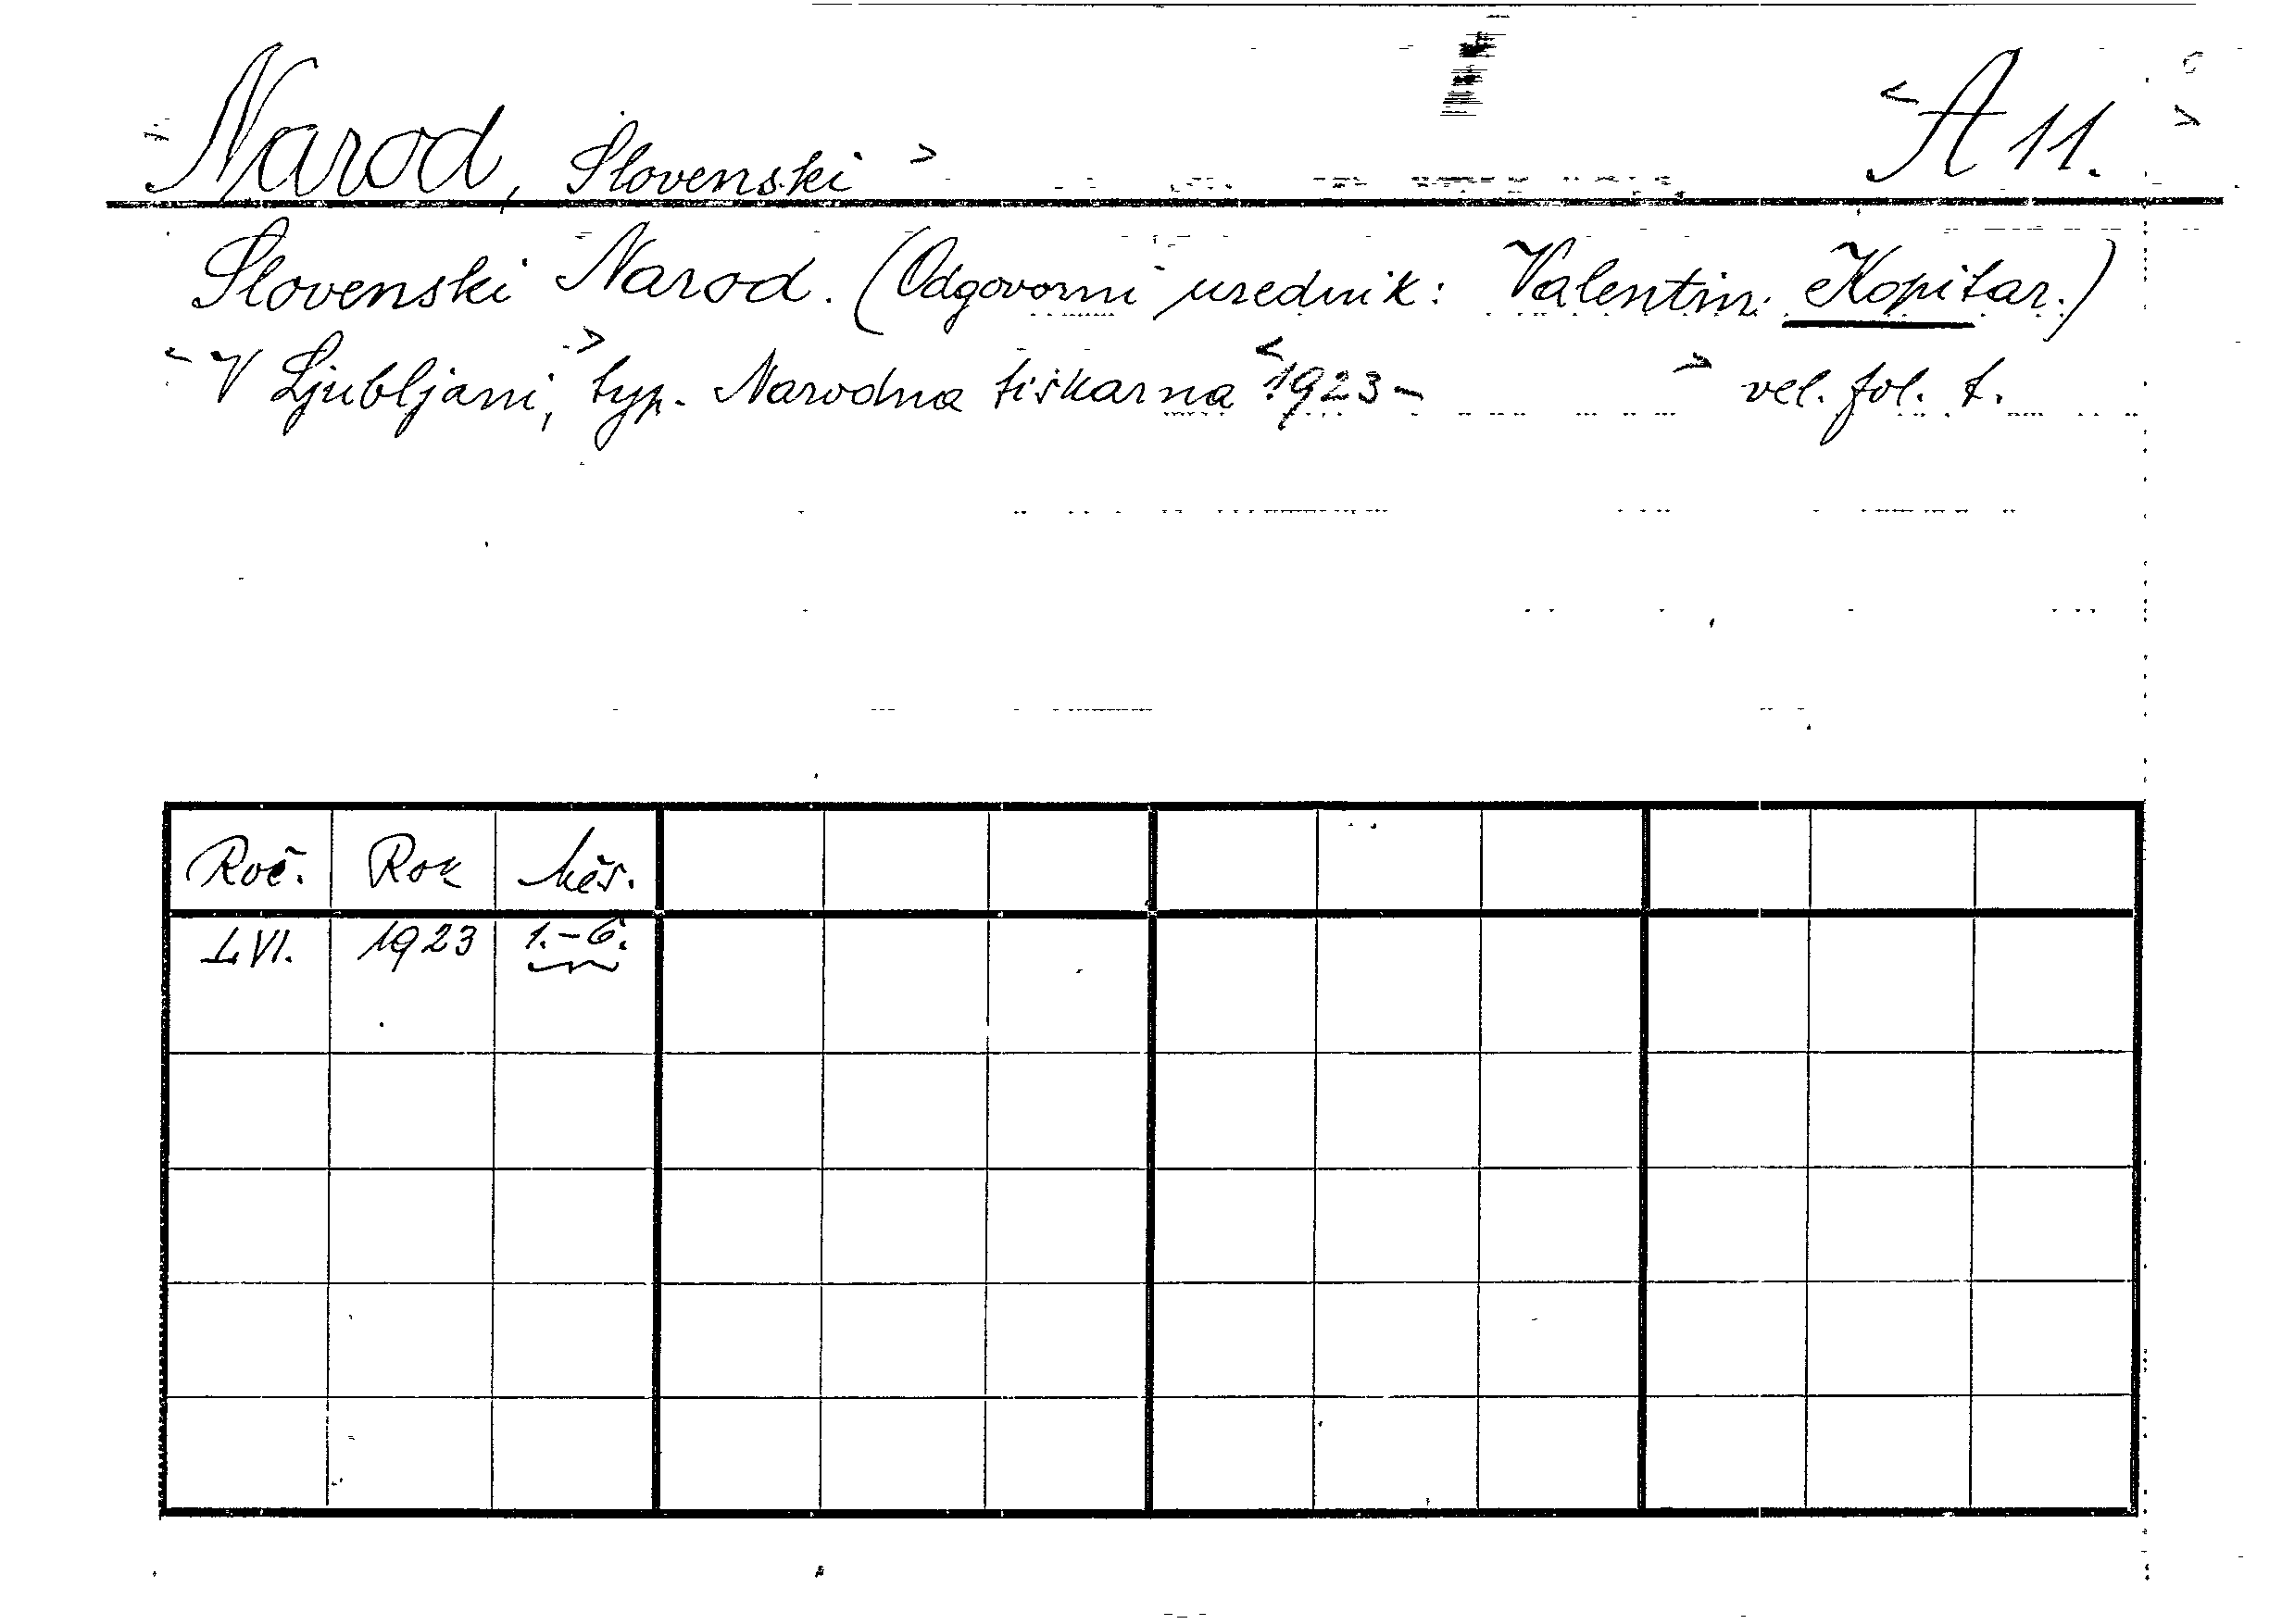 <Narod, Slovenski> <A 11.>
Slovenski Narod. (Odgovorni urednik: Valentin Kopitar.)
<V Ljubljani,> typ. Narodna tiskarna <1923- > vel. fol. t.
Roč. Rok Měs.
LVI. 1923 1.-6.